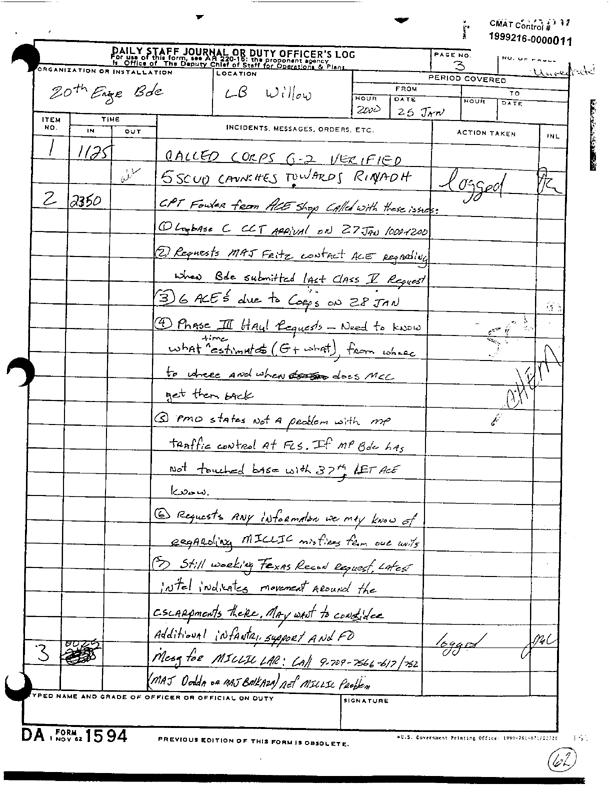 CMAT Control #
1999216-0000011
DAILY STAFF JOURNAL OR DUTY OFFICER'S LOG
For use of this form, see AR 220-15; the proponent agency
is Office of The Deputy Chief of Staff for Operations & Plans.
PAGE NO.
3
ORGANIZATION OR INSTALLATION
20th Engr Bde
LOCATION
LB Willow
PERIOD COVERED
FROM
TO
HOUR
2000
DATE
25 JAN
HOUR
DATE
ITEM NO.
TIME
IN
OUT
INCIDENTS, MESSAGES, ORDERS, ETC.
ACTION TAKEN
INL
1 1125 CALLED CORPS G-2 VERIFIED
5 SCUD LAUNCHES TOWARDS RIYADH logged
2 2350 CPT Fowler from ACE Shop Called with these issues:
① Logbase C CCT ARRIVAL ON 27 JAN 1000-1200
② Requests MAJ Fritz contact ACE regarding
when Bde submitted last Class V Request
③ 6 ACE's due to Corps ON 28 JAN
④ Phase III Haul Requests - Need to know
what time estimates (G+what), from where
to where and when does MCC
get them back
⑤ PMO states Not a problem with MP
traffic control at FLS. If MP Bde has
Not touched base with 37th, LET ACE
know.
⑥ Requests ANY information we may know of
regarding MICLIC misfires from our units
⑦ Still working Texas Recon request, Latest
intel indicates movement around the
escarpments there, May want to consider
Additional infantry support AND FO
3 0025 Mesg for MICLIC LAR: Call 9-709-7566-617/752 logged
(MAJ Dodda or MAJ ) ref MICLIC Problem
CHEM
TYPED NAME AND GRADE OF OFFICER OR OFFICIAL ON DUTY
SIGNATURE
DA FORM 1 NOV 62 1594
PREVIOUS EDITION OF THIS FORM IS OBSOLETE.
62